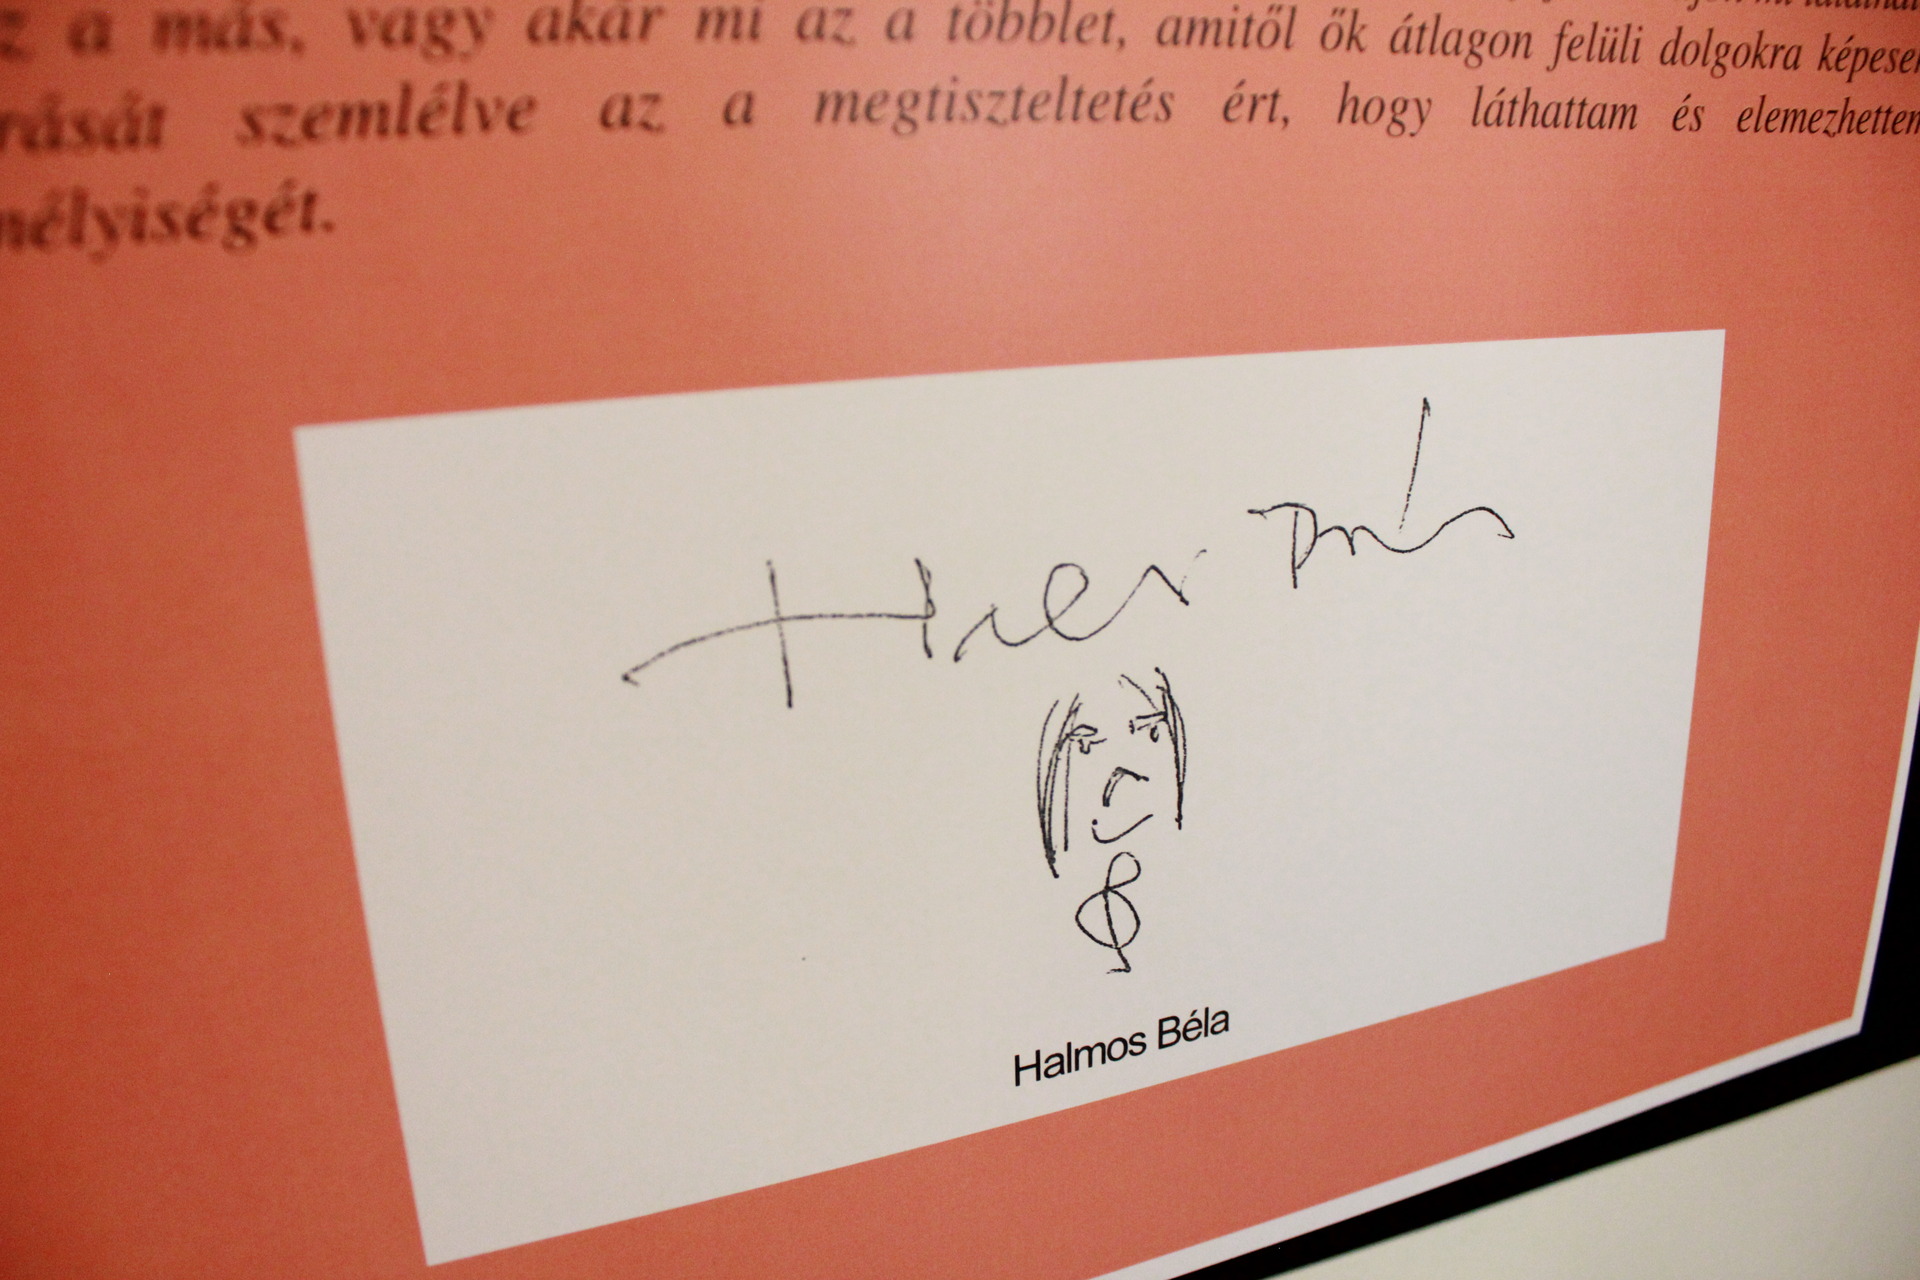 a más, vagy akár mi az a többlet, amitől ők átlagon felüli dolgokra
szemlélve az a megtiszteltetés ért, hogy láthattam és elemezhettem
mélyiségét.
Halmos Béla